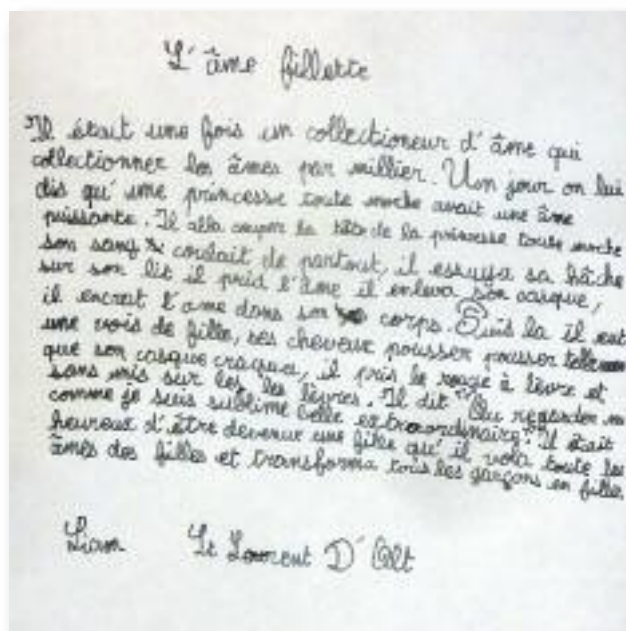 L'âme fillette
Il était une fois un collectioneur d'âme qui
collectionner les âmes par millier. Un jour on lui
dis qu'une princesse toute moche avait une âme
puissante. Il alla couper la tête de la princesse toute moche
son sang coulait de partout, il essuya sa hâche
sur son lit il prid l'âme il enleva son casque,
il encrat l'ame dans son corps. Suis la il eut
une vois de fille, ses cheveux pousser pousser
que son casque craqua, il pris le rouge à lèvre et
sans mis sur les les lèvres. Il dit "Ou regarder
comme je suis sublime belle extraordinaire". Il était
heureux d'être devenue une fille qu'il vola toute les
âmes des filles et transforma tous les garçons en filles
Liam St Laurent D'Olt